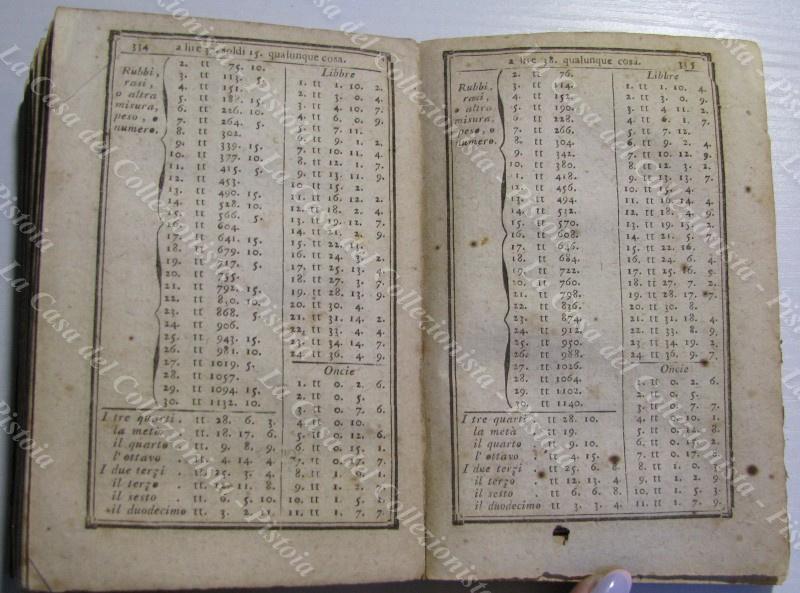 334 2 lire 37. soldi 15. qualunque cosa.
Rubbi,
rasi,
o altra
misura,
peso, o
numero.
2. tt 75. 10.
3. tt 113. 5.
4. tt 151.
5. tt 188. 15.
6. tt 226. 10.
7. tt 264. 5.
8. tt 302.
9. tt 339. 15.
10. tt 377. 10.
11. tt 415. 5.
12. tt 453.
13. tt 490. 15.
14. tt 528. 10.
15. tt 566. 5.
16. tt 604.
17. tt 641. 15.
18. tt 679. 10.
19. tt 717. 5.
20. tt 755.
21. tt 792. 15.
22. tt 830. 10.
23. tt 868. 5.
24. tt 906.
25. tt 943. 15.
26. tt 981. 10.
27. tt 1019. 5.
28. tt 1057.
29. tt 1094. 15.
30. tt 1132. 10.
I tre quarti . tt 28. 6. 3.
la metà . tt 18. 17. 6.
il quarto . tt 9. 8. 9.
l'ottavo . tt 4. 14. 4.
I due terzi . tt 25. 3. 4.
il terzo . tt 12. 11. 8.
il sesto . tt 6. 5. 10.
il duodecimo tt 3. 2. 11.
Libbre
1. tt 1. 10. 2.
2. tt 3. 0. 4.
3. tt 4. 10. 7.
4. tt 6. 0. 9.
5. tt 7. 11.
6. tt 9. 1. 2.
7. tt 10. 11. 4.
8. tt 12. 1. 7.
9. tt 13. 11. 9.
10. tt 15. 2.
11. tt 16. 12. 2.
12. tt 18. 2. 4.
13. tt 19. 12. 7.
14. tt 21. 2. 9.
15. tt 22. 13.
16. tt 24. 3. 2.
17. tt 25. 13. 4.
18. tt 27. 3. 7.
19. tt 28. 13. 9.
20. tt 30. 4.
21. tt 31. 14. 2.
22. tt 33. 4. 4.
23. tt 34. 14. 7.
24. tt 36. 4. 9.
Oncie
1. tt 0. 2. 6.
2. tt 0. 5.
3. tt 0. 7. 6.
4. tt 0. 10.
5. tt 0. 12. 6.
6. tt 0. 15.
7. tt 0. 17. 7.
8. tt 1. 0. 1.
9. tt 1. 2. 7.
10. tt 1. 5. 2.
11. tt 1. 7. 7.
2 lire 38. qualunque cosa. 335
Rubbi,
rasi,
o altra
misura,
peso, o
numero.
2. tt 76.
3. tt 114.
4. tt 152.
5. tt 190.
6. tt 228.
7. tt 266.
8. tt 304.
9. tt 342.
10. tt 380.
11. tt 418.
12. tt 456.
13. tt 494.
14. tt 532.
15. tt 570.
16. tt 608.
17. tt 646.
18. tt 684.
19. tt 722.
20. tt 760.
21. tt 798.
22. tt 836.
23. tt 874.
24. tt 912.
25. tt 950.
26. tt 988.
27. tt 1026.
28. tt 1064.
29. tt 1102.
30. tt 1140.
I tre quarti . tt 28. 10.
la metà . tt 19.
il quarto . tt 9. 10.
l'ottavo . tt 4. 15.
I due terzi . tt 25. 6. 8.
il terzo . tt 12. 13. 4.
il sesto . tt 6. 6. 8.
il duodecimo tt 3. 3. 4.
Libbre
1. tt 1. 10. 4.
2. tt 3. 0. 9.
3. tt 4. 11. 2.
4. tt 6. 1. 7.
5. tt 7. 12.
6. tt 9. 2. 4.
7. tt 10. 12. 9.
8. tt 12. 3. 2.
9. tt 13. 13. 7.
10. tt 15. 4.
11. tt 16. 14. 4.
12. tt 18. 4. 9.
13. tt 19. 15.
14. tt 21. 5.
15. tt 22. 16.
16. tt 24. 6. 4.
17. tt 25. 16.
18. tt 27. 7. 2.
19. tt 28. 17. 7.
20. tt 30. 8.
21. tt 31. 18. 4.
22. tt 33. 8. 9.
23. tt 34. 19. 2.
24. tt 36. 9. 7.
Oncie
1. tt 0. 2. 6.
2. tt 0. 5.
3. tt 0. 7. 7.
4. tt 0. 10. 1.
5. tt 0. 12. 8.
6. tt 0. 15.
7. tt 0. 17. 8.
8. tt 1. 0. 3.
9. tt 1. 2. 9.
10. tt 1. 5. 3.
11. tt 1. 7. 9.
La Casa del Collezionista - Pistoia